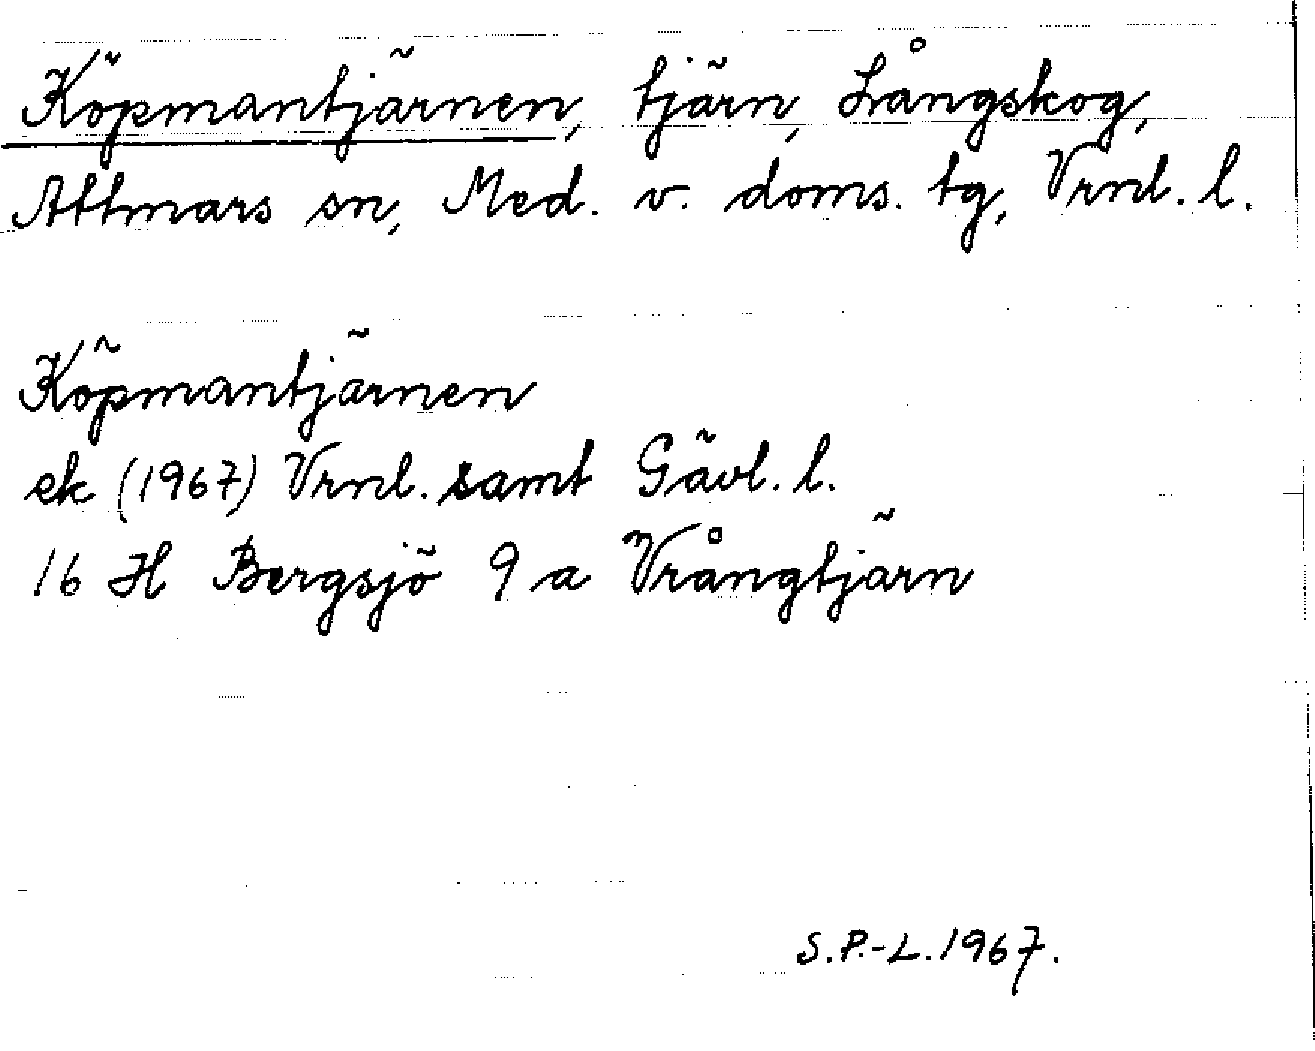 Köpmantjärnen, tjärn, Långskog,
Attmars sn, Med. v. doms. tg, Vrnl. l.
Köpmantjärnen
ek (1967) Vrnl. samt Gävl. l.
16 H Bergsjö 9 a Vrångtjärn
S.P.-L. 1967.